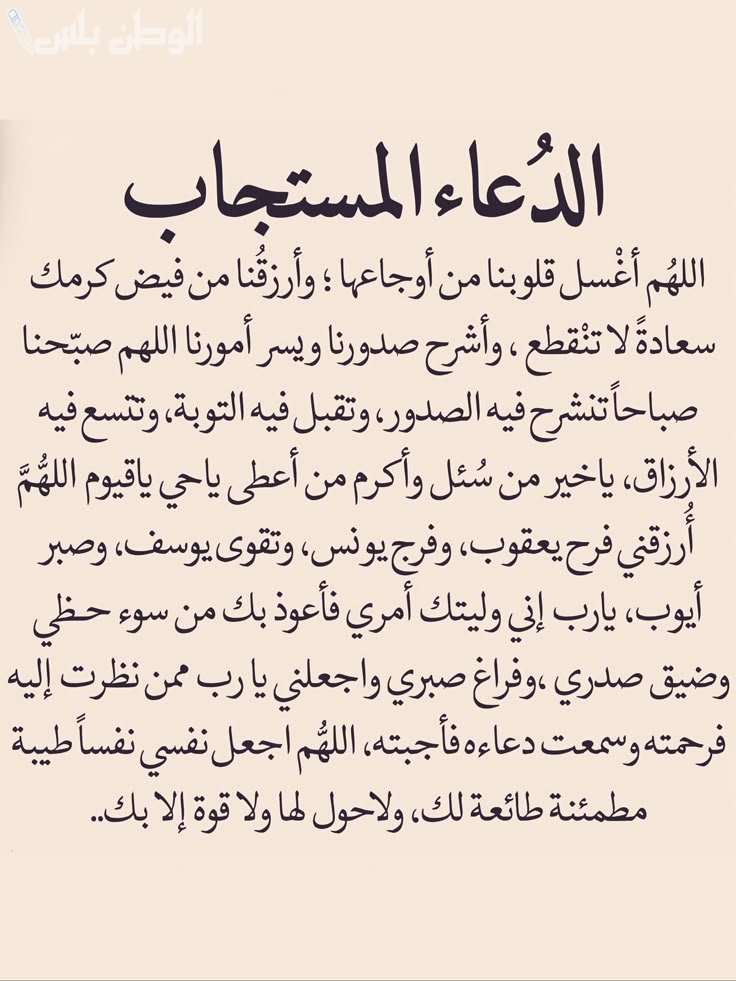 الوطن بلس
الدُعاء المستجاب
اللهُم أغْسل قلوبنا من أوجاعها ؛ وأرزقُنا من فيض كرمك
سعادةً لا تنْقطع ، وأشرح صدورنا ويسر أمورنا اللهم صبّحنا
صباحاً تنشرح فيه الصدور، وتقبل فيه التوبة، وتتسع فيه
الأرزاق، ياخير من سُئل وأكرم من أعطى ياحي ياقيوم اللهُّمَّ
أُرزقني فرح يعقوب، وفرج يونس، وتقوى يوسف، وصبر
أيوب، يارب إني وليتك أمري فأعوذ بك من سوء حظي
وضيق صدري ،وفراغ صبري واجعلني يا رب ممن نظرت إليه
فرحمته وسمعت دعاءه فأجبته، اللهُّم اجعل نفسي نفساً طيبة
مطمئنة طائعة لك، ولاحول لها ولا قوة إلا بك..